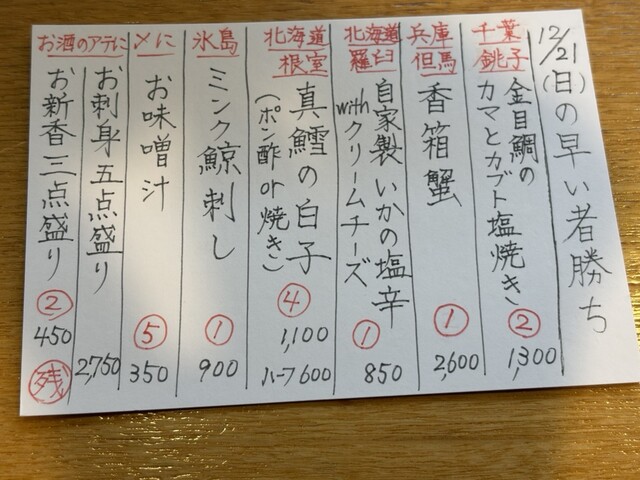 12/21(日)の早い者勝ち
千葉
銚子
金目鯛の
カマとカブト塩焼き
②
1,300
兵庫
但馬
香箱蟹
①
2,600
北海道
羅臼
自家製いかの塩辛
withクリームチーズ
①
850
北海道
根室
真鱈の白子
(ポン酢or焼き)
④
1,100
ハーフ600
氷島
ミンク鯨刺し
①
900
〆に
お味噌汁
⑤
350
お酒のアテに
お刺身五点盛り
2,750
お新香三点盛り
②
450
残